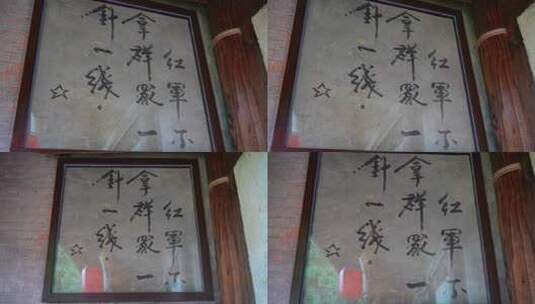 红軍不
拿群眾一
針一线。
红軍不
拿群眾一
針一线。
红軍不
拿群眾一
針一线。
红軍不
拿群眾一
針一线。